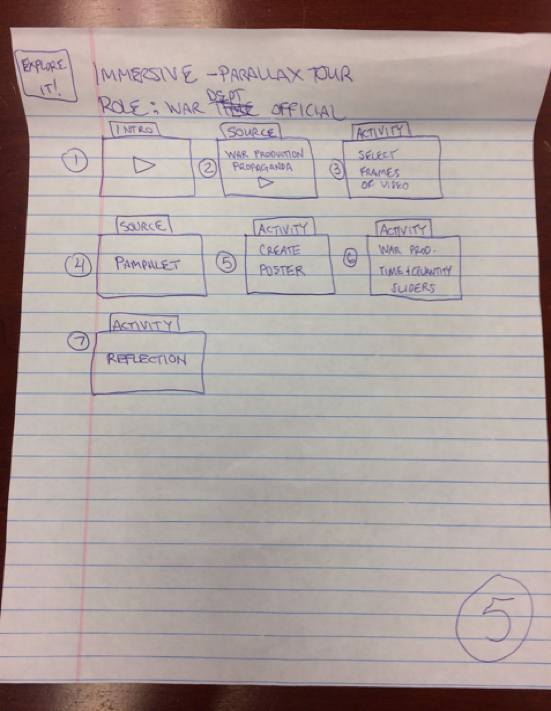 EXPLORE
IT!
IMMERSIVE - PARALLAX TOUR
ROLE: WAR DEPT OFFICIAL
INTRO
1
SOURCE
2
WAR PRODUCTION
PROPAGANDA
ACTIVITY
3
SELECT
FRAMES
OF VIDEO
SOURCE
4
PAMPHLET
ACTIVITY
5
CREATE
POSTER
ACTIVITY
6
WAR PROD.
TIME + QUANTITY
SLIDERS
ACTIVITY
7
REFLECTION
5